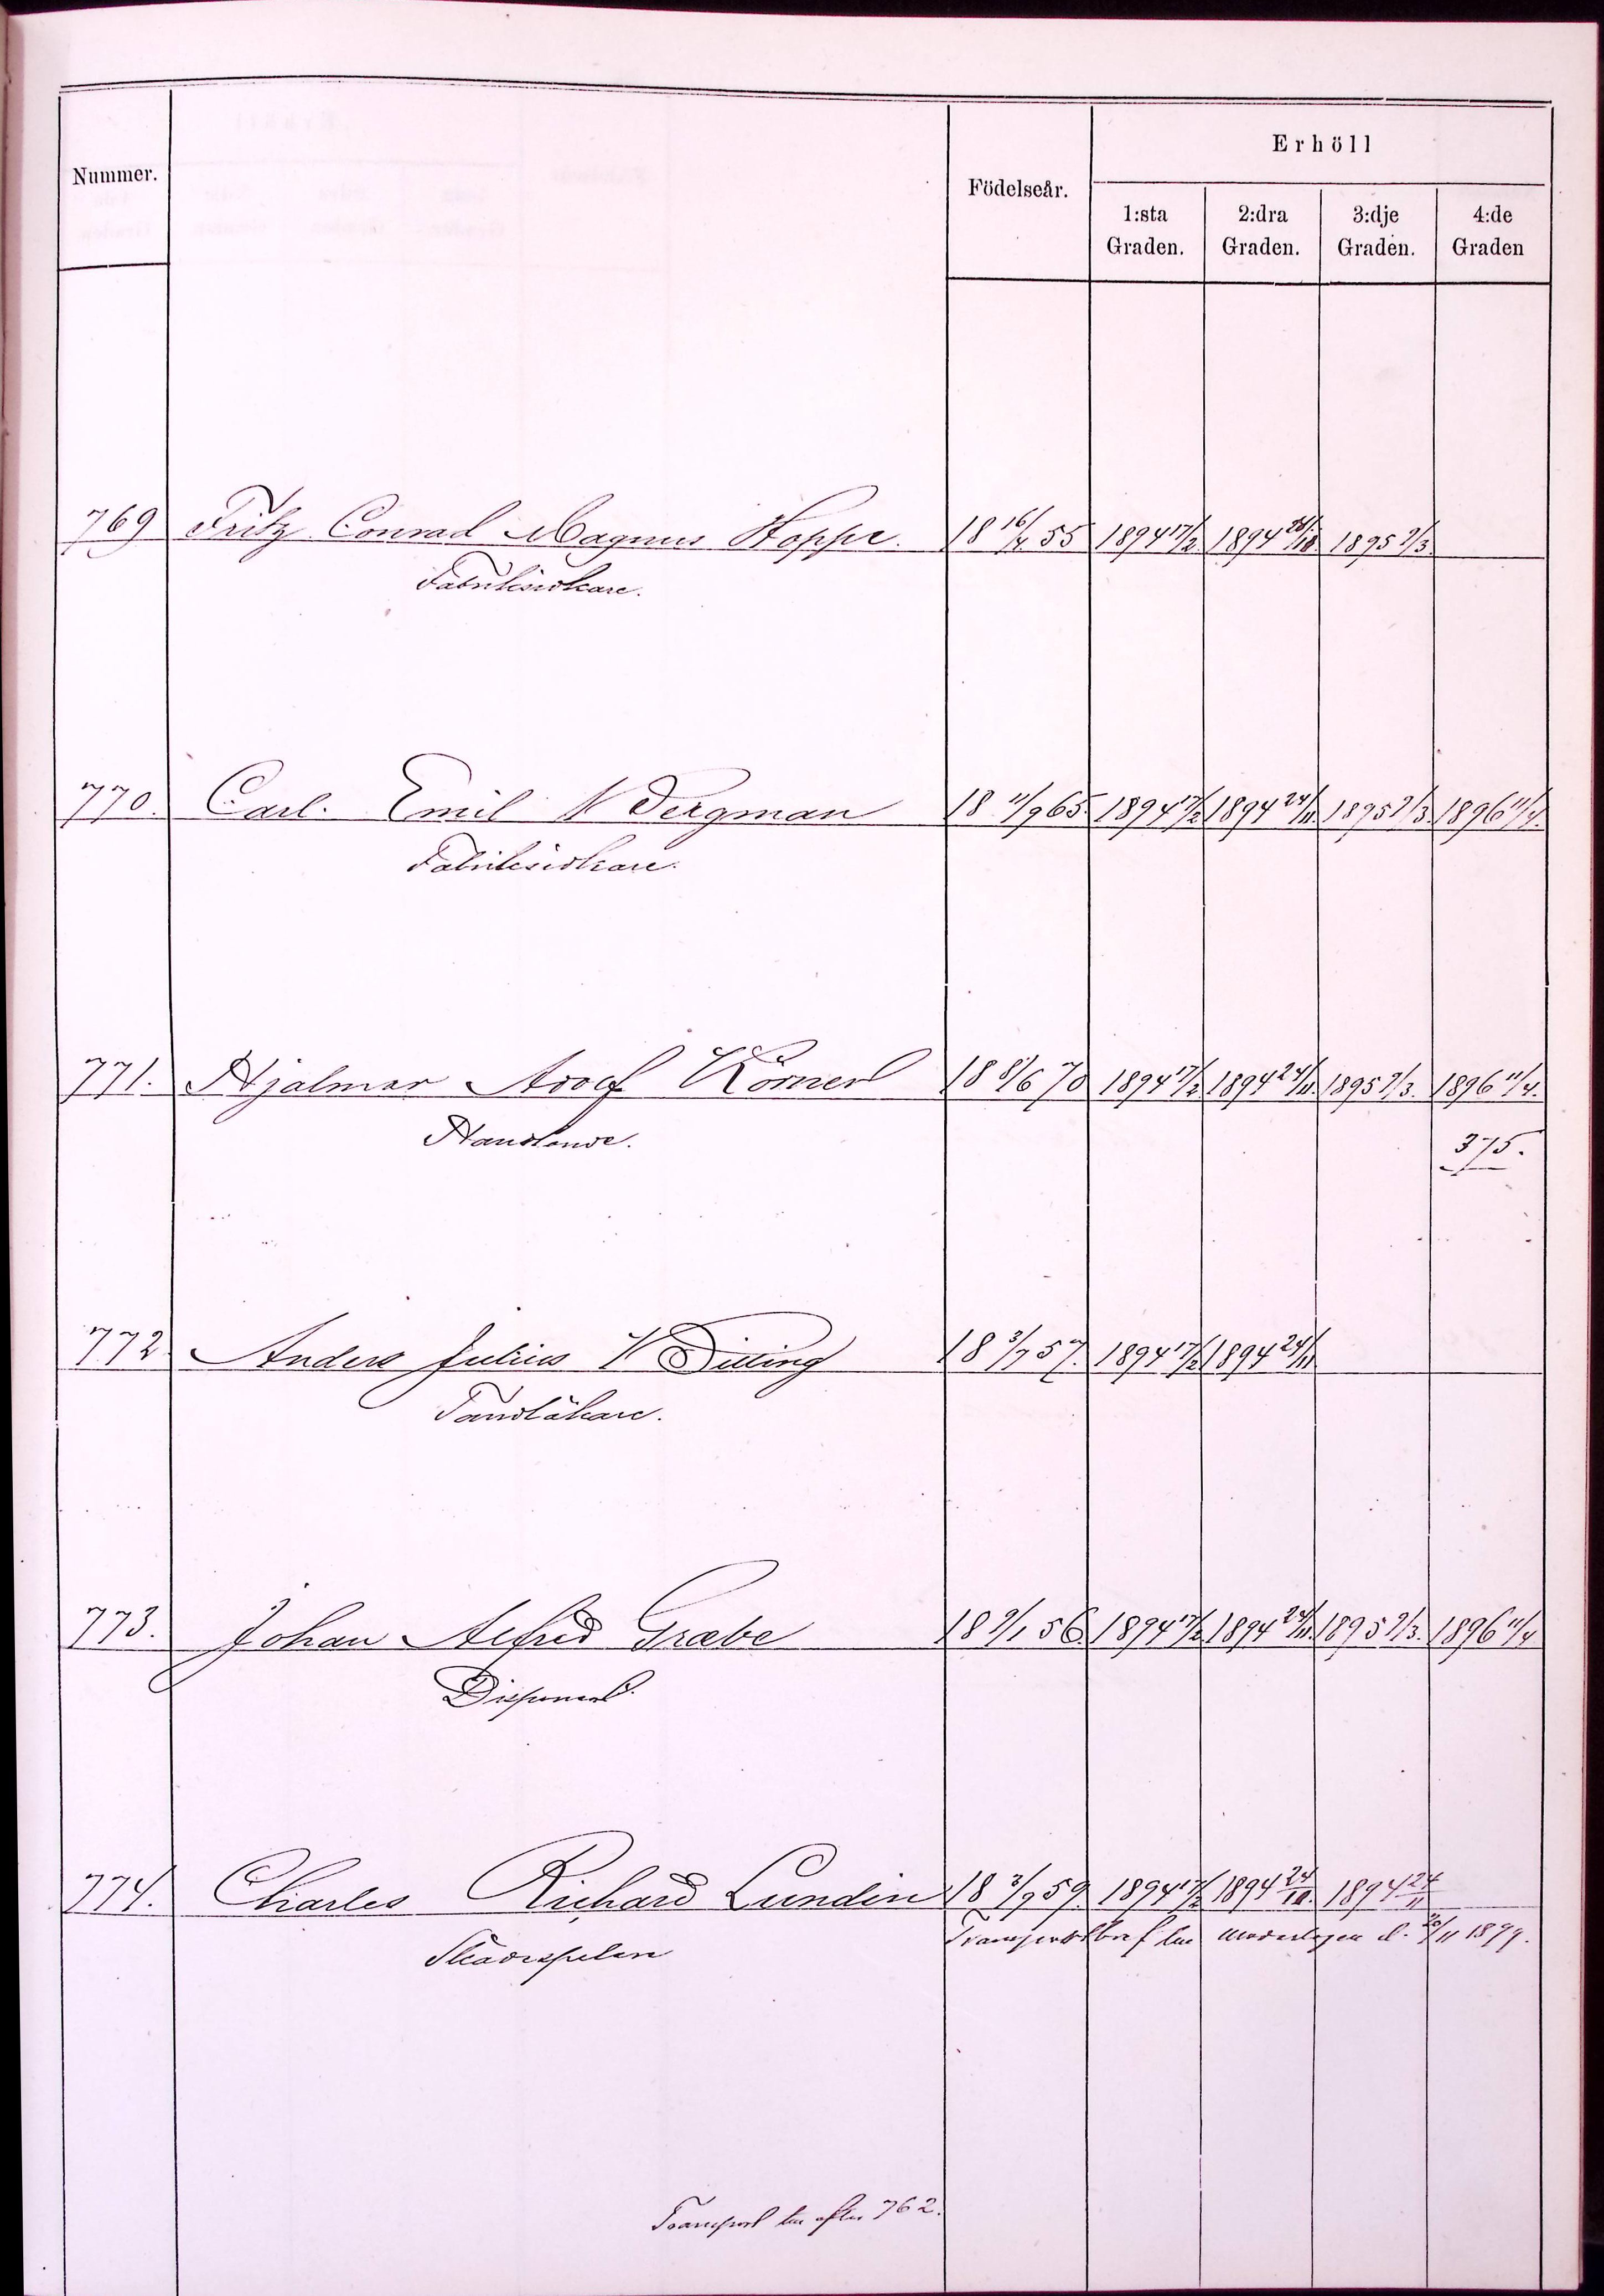 Erhöll
Nummer. Födelseår. 1:sta Graden. 2:dra Graden. 3:dje Graden. 4:de Graden
769 Fritz Conrad Magnus Hoppe. 18 16/4 55 1894 17/2 1894 1895 9/3
Fabriksidkare.
770. Carl Emil Wergman 18 11/9 65. 1894 17/2 1894 24/11 1895 9/3. 1896 11/4.
Fabriksidkare.
771. Hjalmar Adolf Körner 18 8/6 70 1894 17/2 1894 24/11. 1895 9/3. 1896 11/4.
Handlande. 375.
772 Anders Julius Willing 18 3/7 57. 1894 17/2 1894 24/11
Tandläkare.
773. Johan Alfred Græbe 18 9/1 56 1894 17/2 1894 24/11. 1895 9/3. 1896 11/4
Disponent.
774. Charles Richard Lundin 18 3/9 59. 1894 17/2 1894 24/11. 1894 24/11
Skådespelare Transportbref d. 20/11 1899.
Transport efter 762.